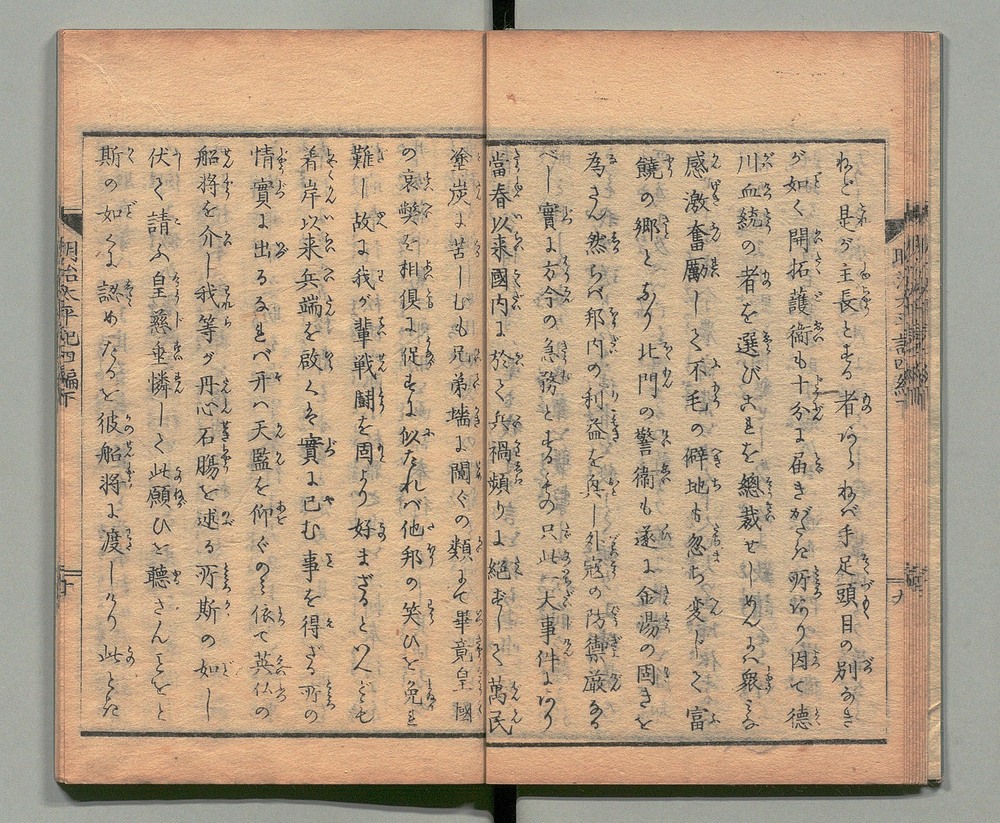 ねど是が主長とする者あらねバ手足頭目の別なき
が如く開拓護衛も十分に届きがたき所あり因て德
川血統の者を選びこれを總裁せしめんにハ衆これに
感激奮厲して不毛の僻地も忽ち変じて富
饒の郷となり北門の警衞も遂に金湯の固きを
為さん然らバ邦内の利益を興し外寇の防禦厳なる
べし實に方今の急務とするもの只此一大事件にあり
當春以来國内に於て兵禍頻りに絶ずして萬民
塗炭に苦しむも兄弟墻に鬩ぐの類にて畢竟皇國
の衰弊を相俱に促すに似たれバ他邦の笑ひを免れ
難し故に我が輩戦闘を固より好まざるといへども
着岸以来兵端を啟くハ實に已む事を得ざる所の
情實に出るなれバ只ハ天監を仰ぐのミ依て英仏の
船将を介し我等が丹心石腸を述る所斯の如し
伏て請ふ皇慈垂憐して此願ひを聽さんことをと
斯の如くに認めたるを彼船将に渡しけり此とき
明治太平記四編下
十
九